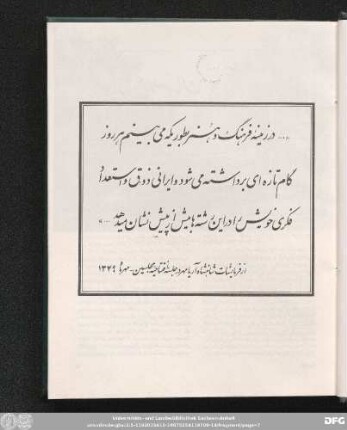 «... در زمینه فرهنگ و هنر بطوریکه می بینیم هر روز
گام تازه ای برداشته می شود و ایرانی ذوق و استعداد
فکری خویش را در این رشته ها بیش از پیش نشان میدهد ...»
از فرمایشات شاهنشاه آریامهر در جلسه افتتاحیه مجلسین - مهرماه ۱۳۴۹
Universitäts- und Landesbibliothek Sachsen-Anhalt
DFG